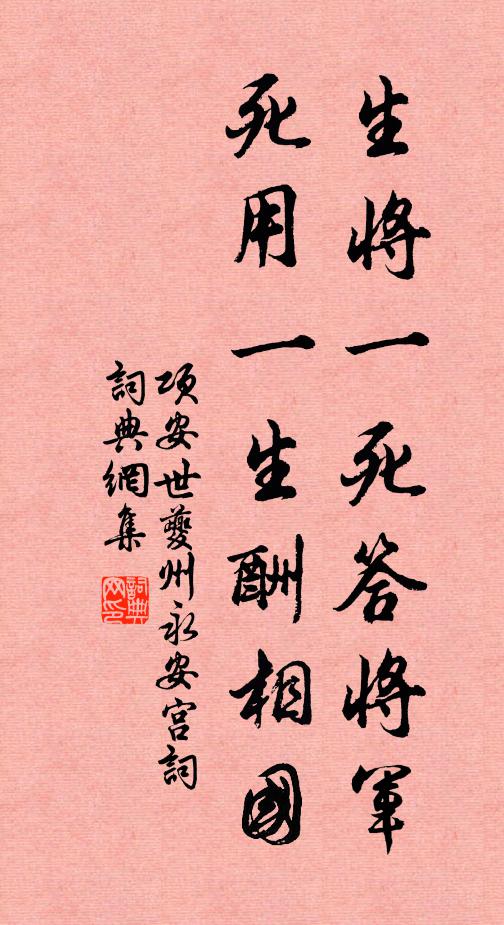 生將一死答將軍
死用一生酬相國
項安世夔州永安宮詞
詞典網集
詞典網印